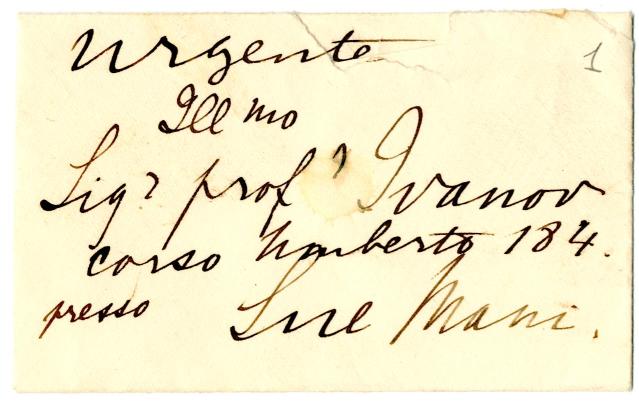 Urgente
1
Ill mo
Sigr profr Ivanov
corso Umberto 184.
presso Sue Mani.